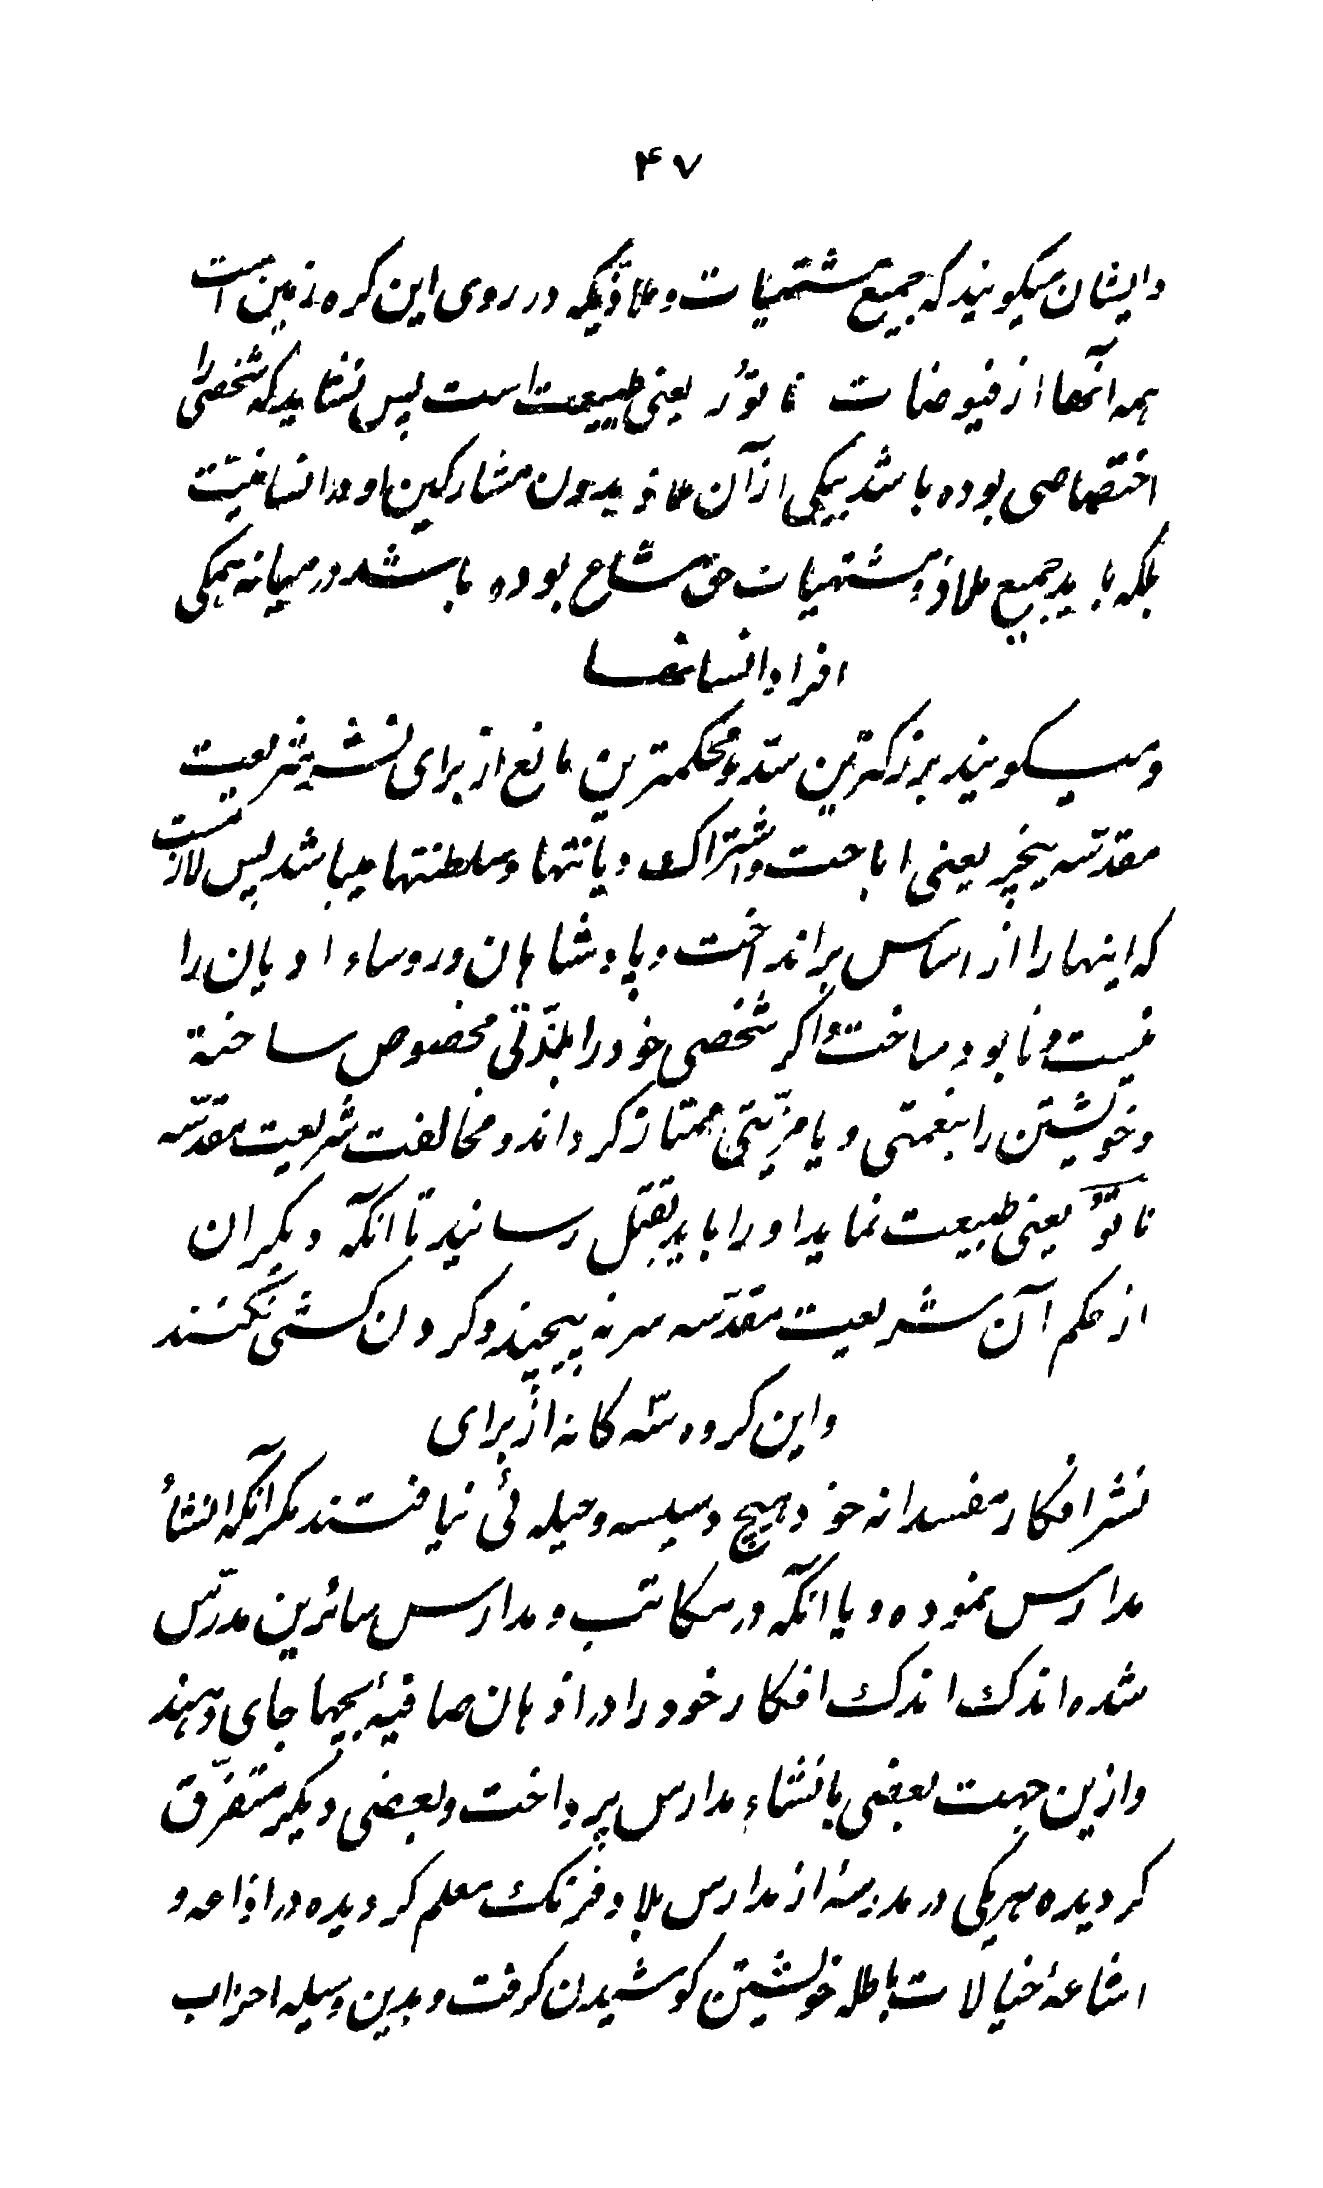 ۴۷
وایشان میکویند که جمیع مشتهیات و ملاذیکه در روی این کره زمین است
همه آنها از فیوضات ناتوُر یعنی طبیعت است پس نشاید که شخصی را
اختصاصی بوده باشد بیکی از آن ملاذ بدون مشارکین او در انسانیّت
بلکه باید جمیع ملاذ و مشتهیات حق مشاع بوده باشد در میانه همکی
افراد انسانها
ومیکویند بزرکترین سدّ و محکمترین مانع از برای نشر شریعت
مقدّسه نیچر یعنی اباحت و اشتراک دیانتها و سلطنتها میباشد پس لازمست
که اینها را از اساس برانداخت و پادشاهان و روساء ادیان را
نیست و نابود ساخت و اکر شخصی خود را بلذّتی مخصوص ساخته
وخویشتن را بنعمتی و یا مزیّتی ممتاز کرداند و مخالفت شریعت مقدّسه
ناتوُر یعنی طبیعت نماید او را باید بقتل رسانید تا آنکه دیکران
از حکم آن شریعت مقدّسه سر نه پیچند و کردن کشی نکنند
واین کروه سه کانه از برای
نشر افکار مفسدانه خود هیچ دسیسه وحیله ئی نیافتند مکر آنکه انشأ
مدارس نموده و یا آنکه در مکاتب و مدارس سائرین مدرّس
شده اندک اندک افکار خود را در اذهان صافیهٔ بچها جای دهند
وازین جهت بعضی بانشاء مدارس پرداخت و بعضی دیکر متفرّق
کردیده هریکی در مدرسهٔ از مدارس بلاد فرنک معلم کردیده در اذاعه و
اشاعهٔ خیالات باطله خویشتن کوشیدن کرفت و بدین وسیله احزاب